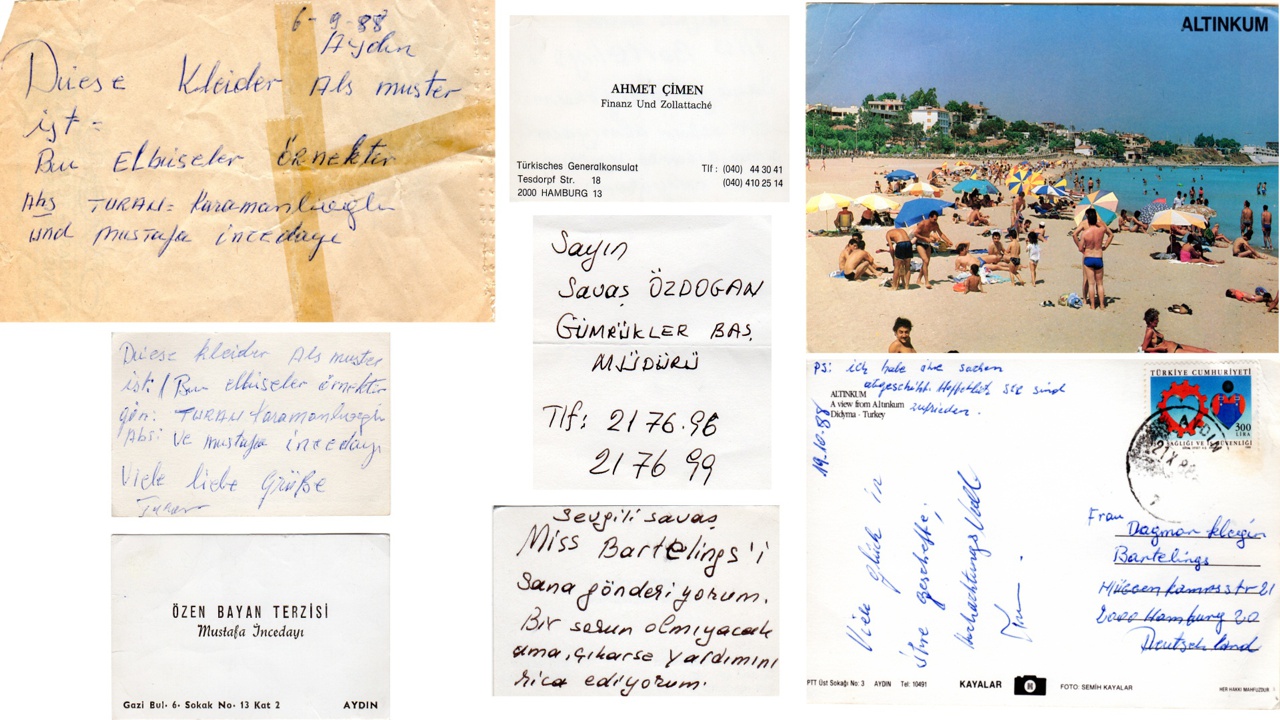 6-9-88
Aydın
Diese Kleider Als muster
ist =
Bu Elbiseler örnektir
Abs TURAN= Karamanlıoğlu
und mustafa incedayı
Diese kleider Als muster
ist: / Bu elbiseler örnektir
gön: TURAN Karamanlıoğlu
Abs: ve mustafa incedayı
Viele liebe Grüße
Turan
ÖZEN BAYAN TERZİSİ
Mustafa İncedayı
Gazi Bul· 6· Sokak No· 13 Kat 2 AYDIN
AHMET ÇİMEN
Finanz Und Zollattaché
Türkisches Generalkonsulat Tlf : (040) 44 30 41
Tesdorpf Str. 18 (040) 410 25 14
2000 HAMBURG 13
Sayın
Savaş ÖZDOGAN
GÜMRÜKLER BAŞ.
MÜDÜRÜ
Tlf: 2176.96
2176 99
Sevgili savaş
Miss Bartelings'i
Sana gönderiyorum.
Bir sorun olmıyacak
ama, çıkarse yardımını
rica ediyorum.
ALTINKUM
PS: ich habe ihre sachen
abgeschikt. Hoffentlich sie sind
zufrieden.
ALTINKUM
A view from Altınkum
Didyma - Turkey
19.10.88
Viele glück in
ihre geschefte;
hochachtungsvoll
TÜRKİYE CUMHURİYETİ
300
LİRA
İŞ SAĞLIĞI VE İŞ GÜVENLİĞİ
AYDIN
Frau Dagmar
Bartelings
2000 Hamburg 20
Deutschland
PTT Üst Sokağı No: 3 AYDIN Tel: 10491 KAYALAR FOTO: SEMİH KAYALAR HER HAKKI MAHFUZDUR